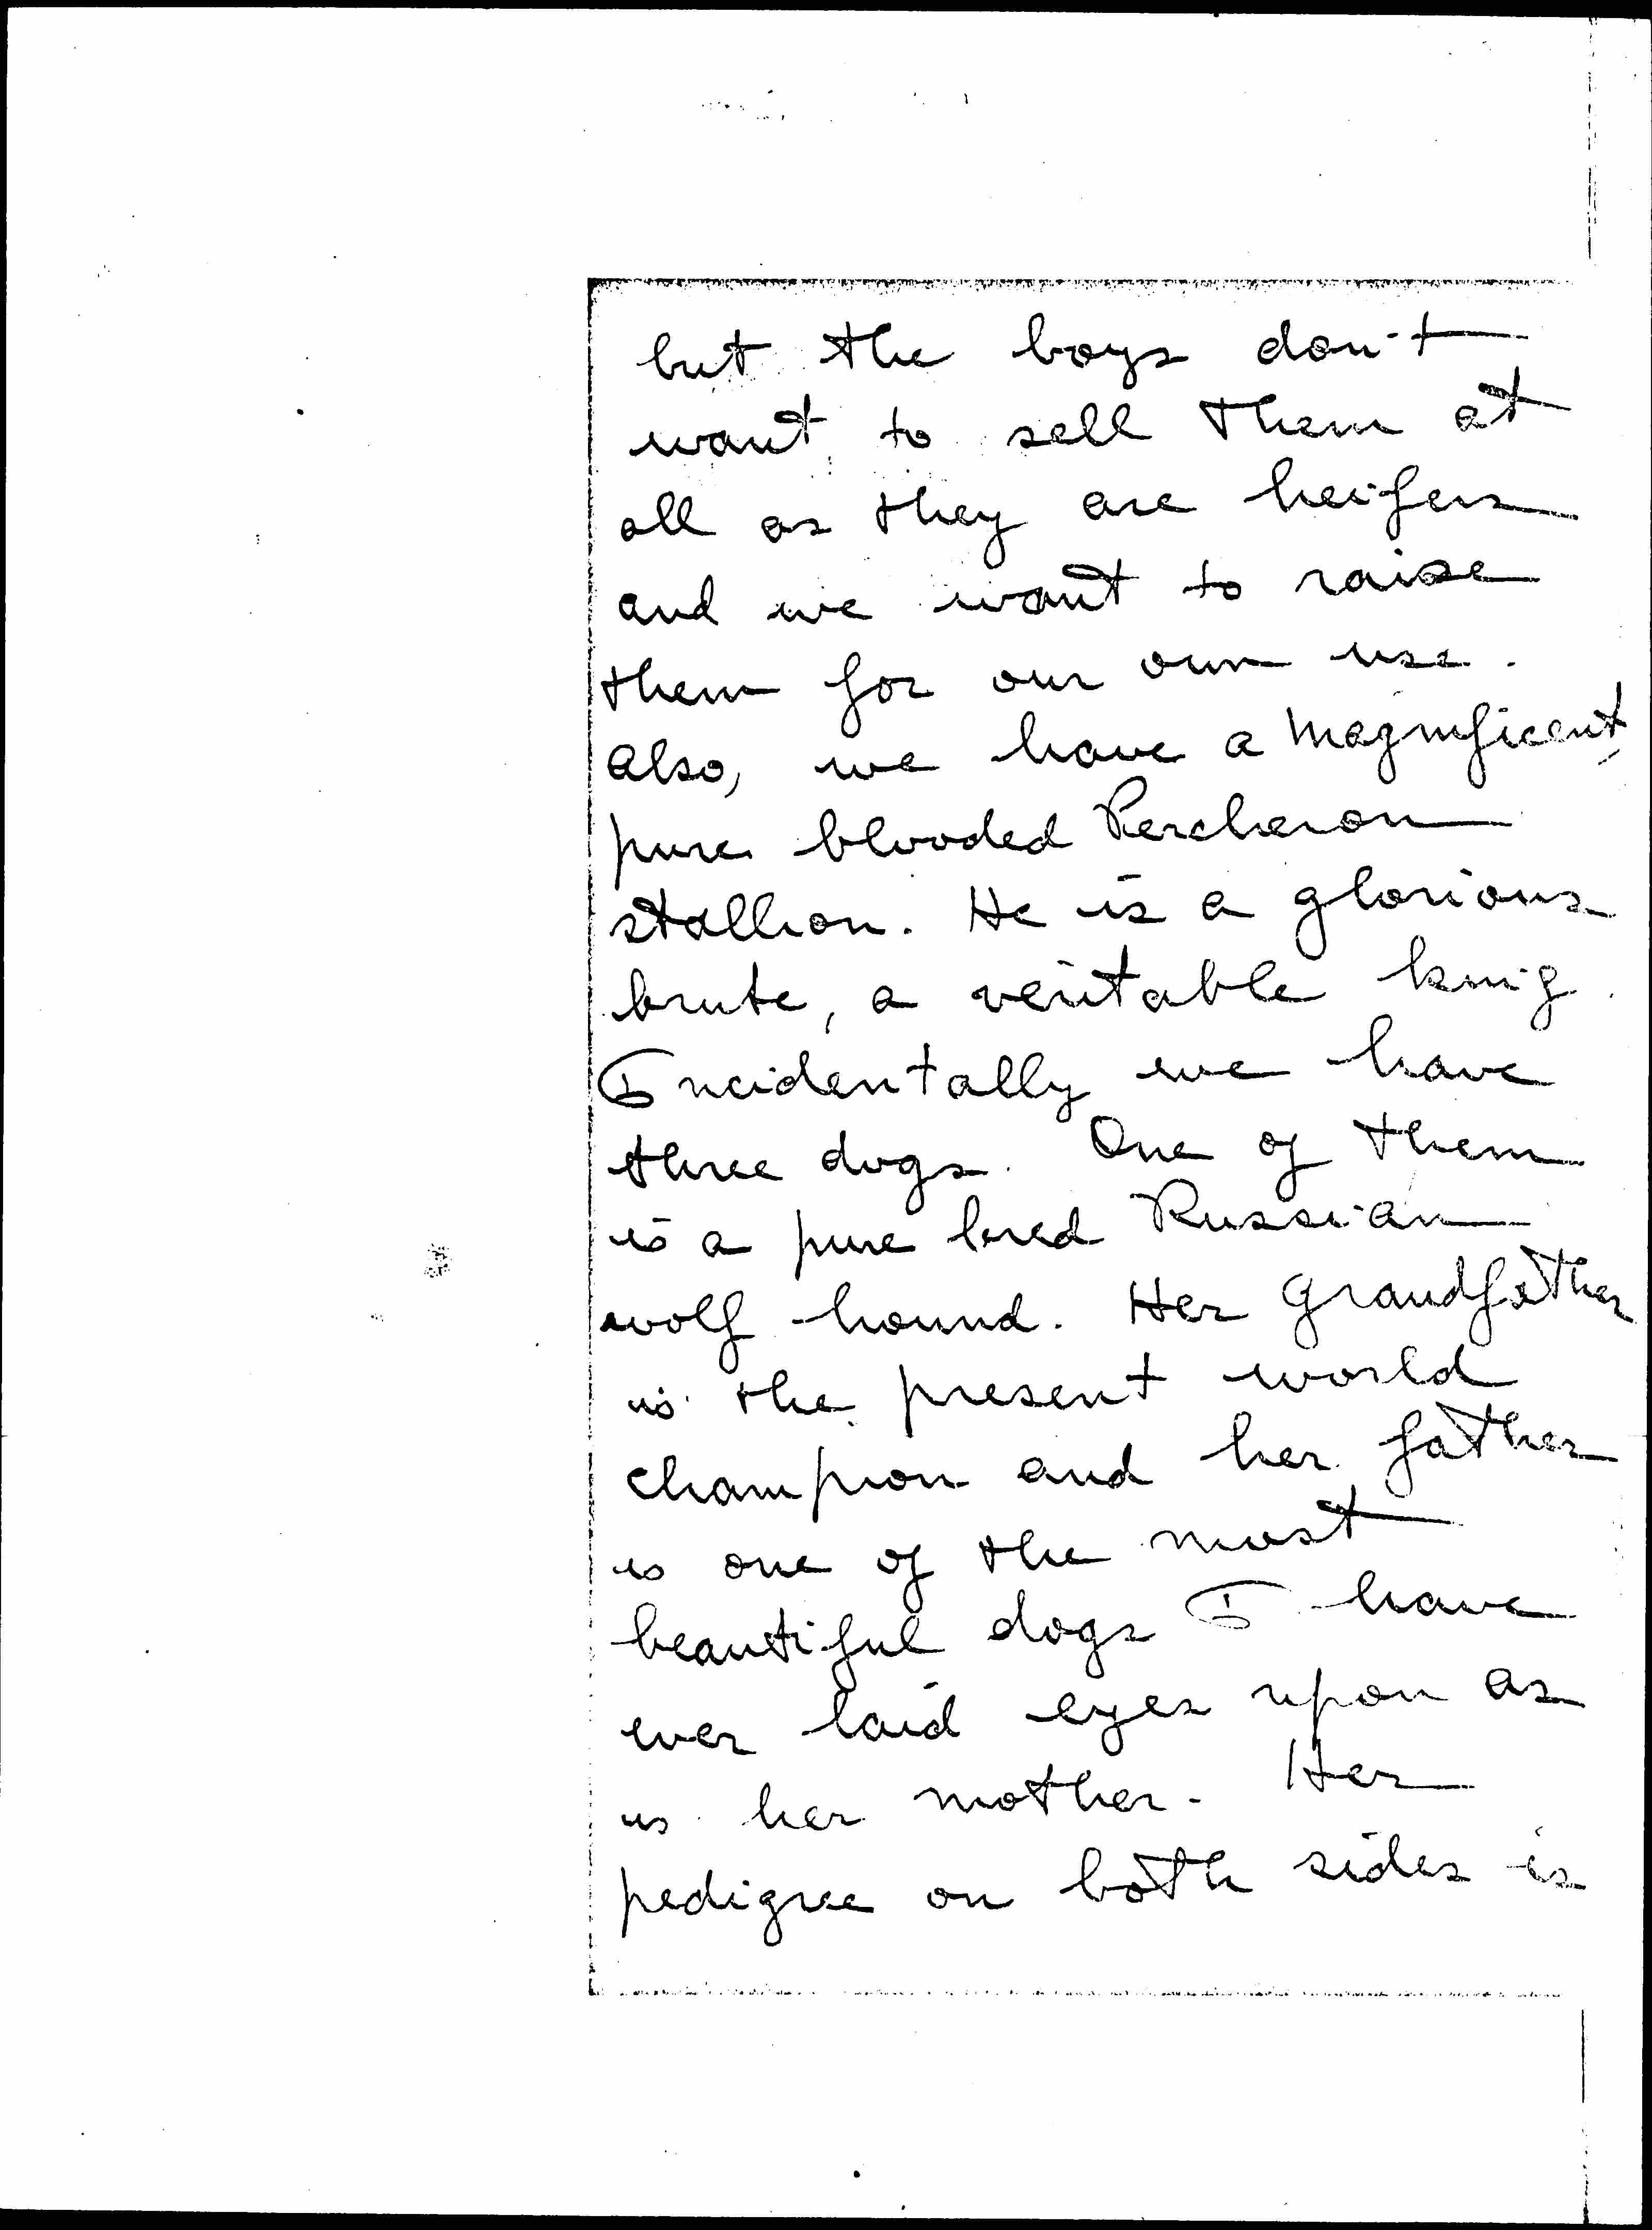 but the boys don't
want to sell them at
all as they are heifers
and we want to raise
them for our own use.
Also, we have a magnificent,
pure blooded Percheron
stallion. He is a glorious
brute, a veritable king.
Incidentally we have
three dogs. One of them
is a pure bred Russian
wolf-hound. Her grandfather
is the present world
champion and her father
is one of the most
beautiful dogs I have
ever laid eyes upon as
is her mother. Her
pedigree on both sides is